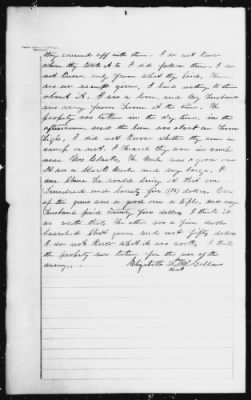 they carried off with them. I do not know
when they took it to I did follow them. I do
not know only from what they said. There
was no receipt given, I said nothing to them
about it. I was a lone, and my husband
was away from home at the time. The
property was taken in the day time, in the
afternoon, and the sun was about an hour
high, I did not know whether they was in
camp or not. I heard they was in camp
near Clarks. The mule was a good one
It was a black mule and very large, I
was shure he would bring at that one
hundred and seventy five (175) dollars. One
of the guns was a good one a rifle, and my
husband paid twenty five dollars I think it
is worth that. The other was a fine double
barreled shot gun and cost fifty dollars
I do not know what it was worth, I think
the property was taken for the use of the
army.
Elizabeth her
mark